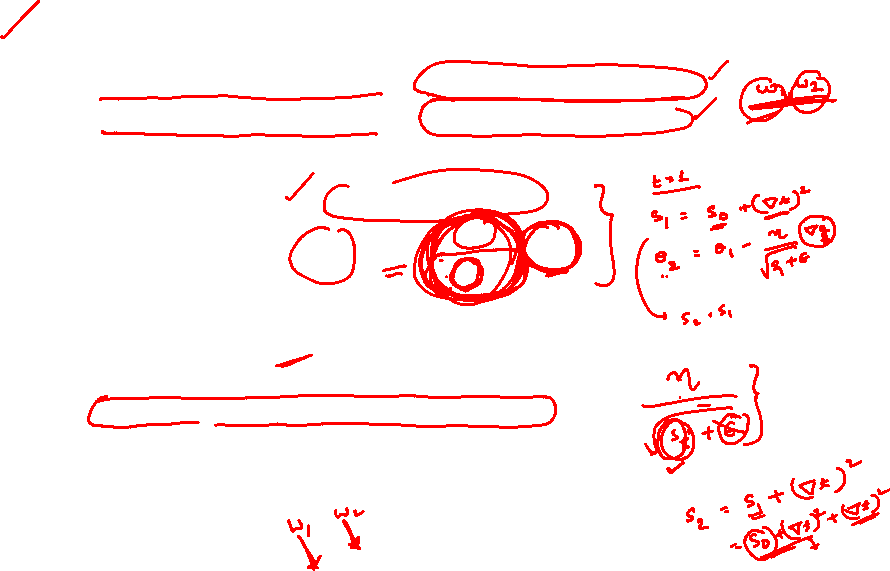 w₁ w₂
t=1
s₁ = s₀ + (∇t)²
θ₂ = θ₁ - η/√(s₁+ϵ) ∇t
s₂ · s₁
η/√(sₜ + ϵ)
s₂ = s₁ + (∇t)²
= s₀ + (∇t)² + (∇t)²
w₁ w₂